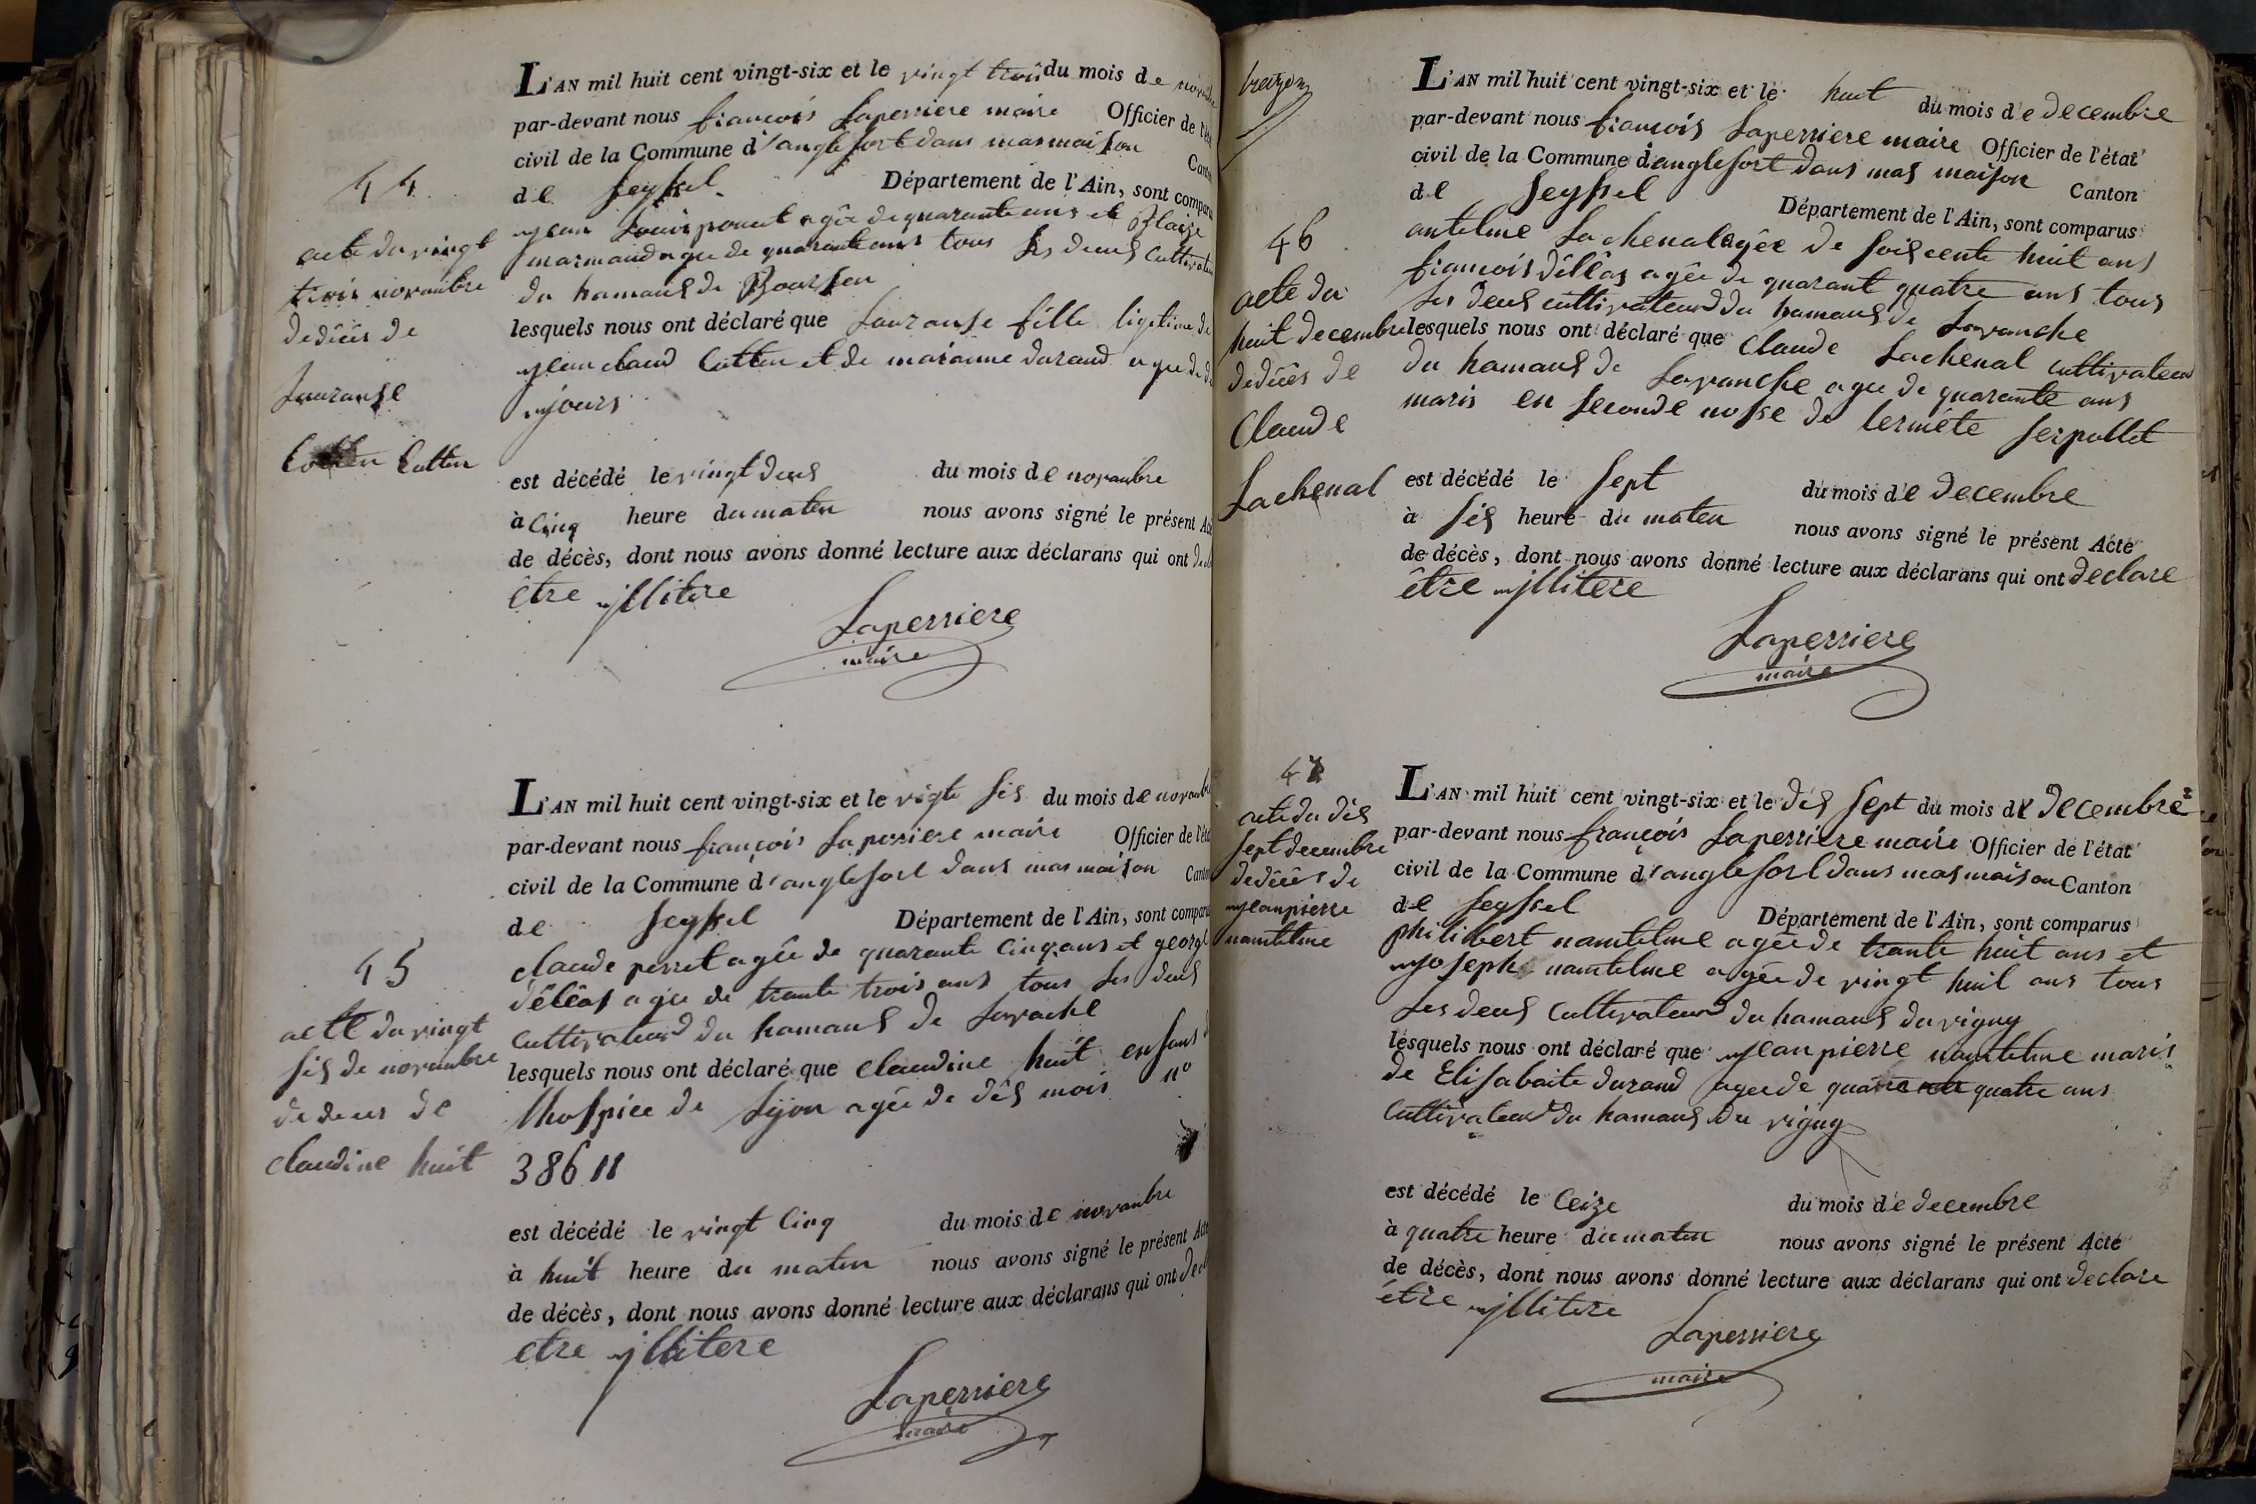 44
acte du vingt
trois novambre
dedéces de
Lauranse
Cottin
L'AN mil huit cent vingt-six et le vingt trois du mois de
par-devant nous françois Laperriere maire Officier de
civil de la Commune d'anglefort dans mas maison
de Seyssel Département de l'Ain, sont
jean Louis agée de quarante ans et Blaise
marmand agee de quarante ans tous les deus
du hamaus de
lesquels nous ont déclaré que Lauranse fille ligetime de
jean claud Cottin et de marianne durand agee de
jours
est décédé le vingt deus du mois de novambre
à Cinq heure du maten nous avons signé le présent
de décès, dont nous avons donné lecture aux déclarans qui ont
être jllitere
Laperriere
maire
45
acte du vingt
sis de novambre
de deces de
claudine huit
L'AN mil huit cent vingt-six et le vigte sis du mois de
par-devant nous françois Laperriere maire Officier de
civil de la Commune d'anglefort dans mas maison
de Seyssel Département de l'Ain, sont
claude perret agée de quarante Cinq ans et
déléas agée de trante trois ans tous les deus
Cultivateur du hamaus de Lovache
lesquels nous ont déclaré que Claudine huit enfans
lhospice de Lyon agée de dés mois nº
38611
est décédé le vingt Cinq du mois de novambre
à huit heure du maten nous avons signé le présent
de décès, dont nous avons donné lecture aux déclarans qui ont
etre jllitere
Laperriere
maire
46
acte du
huit decembre
dedéces de
Claude
Lachenal
L'AN mil huit cent vingt-six et le huit du mois de decembre
par-devant nous françois Laperriere maire Officier de l'état
civil de la Commune d'anglefort dans mas maison Canton
de Seyssel Département de l'Ain, sont comparus
antelme Lachenal agée de soiscente huit ans
françois déléas agée de quarant quatre ans tous
les deus cultivateurs du hamaus de Lovanche
lesquels nous ont déclaré que Claude Lachenal cultivateur
du hamaus de Lovanche agee de quarante ans
maris en seconde nosse de
est décédé le sept du mois de decembre
à sés heure du maten nous avons signé le présent Acte
de décès, dont nous avons donné lecture aux déclarans qui ont declare
être jllitere
Laperriere
maire
47
acte du dés
sept decembre
dedéces de
jean pierre
nantelme
L'AN mil huit cent vingt-six et le dés sept du mois de decembre
par-devant nous françois Laperriere maire Officier de l'état
civil de la Commune d'anglefort dans mas maison Canton
de Seyssel Département de l'Ain, sont comparus
philibert nantelme agée de trante huit ans et
joseph nantelme agée de vingt huit ans tous
les deus Cultivateur du hamaus du vigny
lesquels nous ont déclaré que jean pierre nantelme maris
de Elisabaite durand agee de quatre ans
Cultivateur du hamaus du vigny
est décédé le Ceize du mois de decembre
à quatre heure du maten nous avons signé le présent Acte
de décès, dont nous avons donné lecture aux déclarans qui ont declare
être jllitere
Laperriere
maire